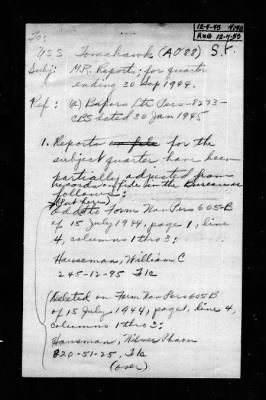 12-4-45
RHB 12-4-45
To:
USS Tomahawk (AO 88) S.F.
Subj: M.R. Reports; for quarter
ending 30 Sep 1944.
Ref: (a) Bupers Ltr Pers-8273-
CBS dated 30 Jan 1945
1. Reports on file for the
subject quarter have been
partially adjusted from
records on file in the Bureau as
follows:
Add to Form NavPers 605-B
of 15 July 1944, page 1, line
4, columns 1 thro 3:
Hauseman, William C
245-12-95 F1c
(Deleted on Form NavPers 605B
of 15 July 1944, page 1, line 4,
columns 1 thro 3:
Hansman, Wilver Pharn
820-51-25, F1c
(over)